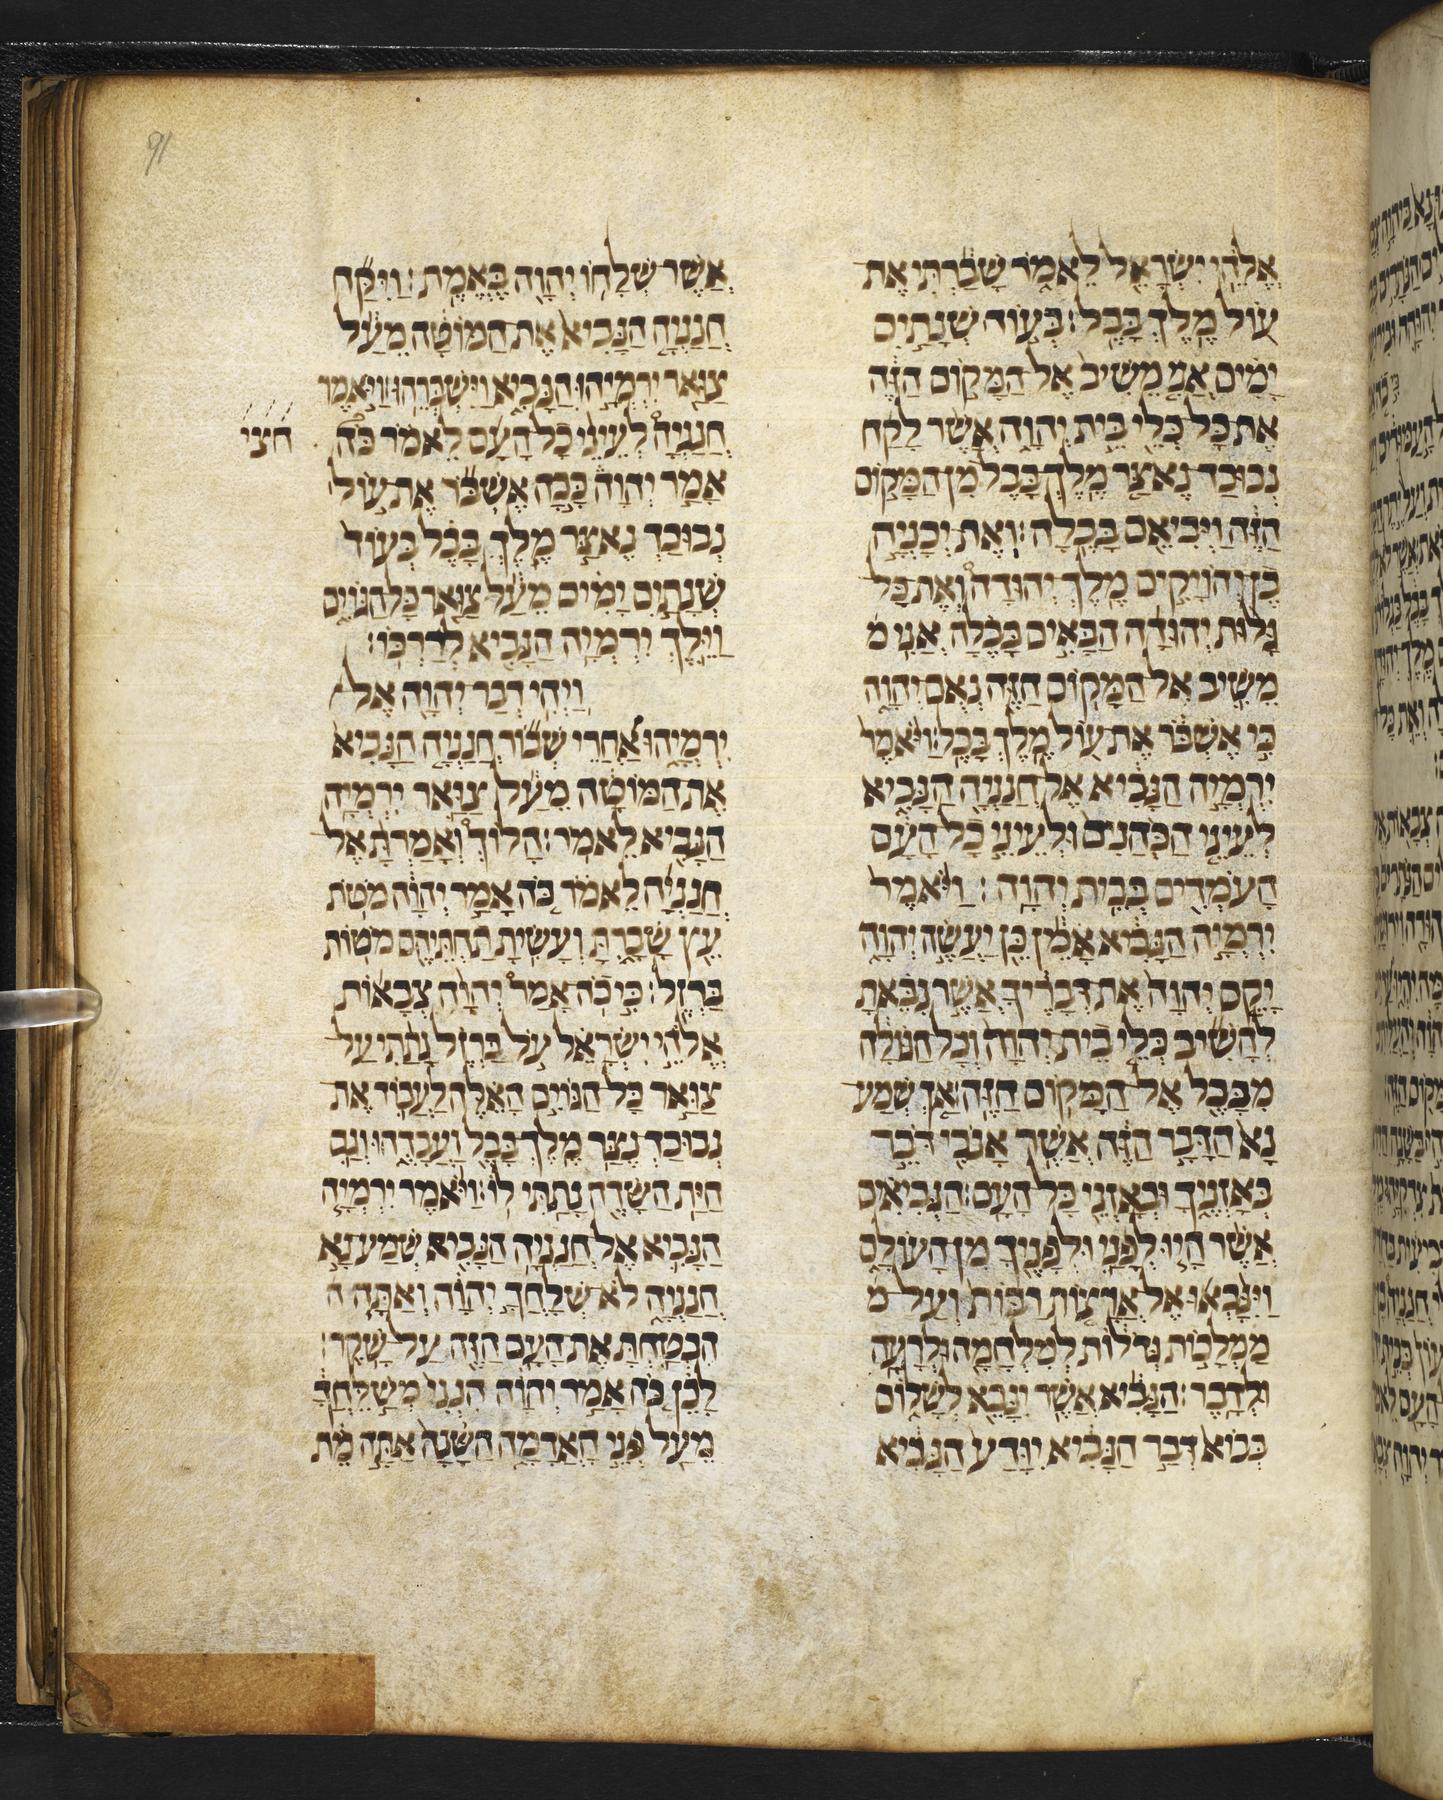 91
אֱלֹהֵ֥י יִשְׂרָאֵ֖ל לֵאמֹ֑ר שָׁבַ֕רְתִּי אֶת
עֹ֖ל מֶ֥לֶךְ בָּבֶֽל׃ בְּע֣וֹד שְׁנָתַ֣יִם
יָמִ֗ים אֲנִ֤י מֵשִׁיב֙ אֶל הַמָּק֣וֹם הַזֶּ֔ה
אֶֽת כָּל כְּלֵ֖י בֵּ֣ית יְהוָ֑ה אֲשֶׁ֨ר לָקַ֜ח
נְבוּכַד נֶאצַּ֤ר מֶֽלֶךְ בָּבֶל֙ מִן הַמָּק֣וֹם
הַזֶּ֔ה וַיְבִיאֵ֖ם בָּבֶֽלָה׃ וְאֶת יְכָנְיָ֣ה
בֶן יְהוֹיָקִ֣ים מֶֽלֶךְ יְהוּדָ֡ה וְאֶת כָּל
גָּל֨וּת יְהוּדָ֜ה הַבָּאִ֣ים בָּבֶ֗לָה אֲנִ֥י מ
מֵשִׁ֛יב אֶל הַמָּק֥וֹם הַזֶּ֖ה נְאֻם יְהוָ֑ה
כִּ֣י אֶשְׁבֹּ֔ר אֶת עֹ֖ל מֶ֥לֶךְ בָּבֶֽל׃ וַיֹּ֙אמֶר֙
יִרְמְיָ֣ה הַנָּבִ֔יא אֶל חֲנַנְיָ֖ה הַנָּבִ֑יא
לְעֵינֵ֤י הַכֹּֽהֲנִים֙ וּלְעֵינֵ֣י כָל הָעָ֔ם
הָעֹמְדִ֖ים בְּבֵ֥ית יְהוָֽה׃ וַיֹּ֙אמֶר֙
יִרְמְיָ֣ה הַנָּבִ֔יא אָמֵ֕ן כֵּ֖ן יַעֲשֶׂ֣ה יְהוָ֑ה
יָקֵ֤ם יְהוָה֙ אֶת דְּבָרֶ֔יךָ אֲשֶׁ֣ר נִבֵּ֗אתָ
לְהָשִׁ֞יב כְּלֵ֤י בֵית יְהוָה֙ וְכָל הַגּוֹלָ֔ה
מִבָּבֶ֖ל אֶל הַמָּק֥וֹם הַזֶּֽה׃ אַךְ שְׁמַֽע
נָא֙ הַדָּבָ֣ר הַזֶּ֔ה אֲשֶׁ֥ר אָנֹכִ֖י דֹּבֵ֣ר
בְּאָזְנֶ֑יךָ וּבְאָזְנֵ֖י כָּל הָעָֽם׃ הַנְּבִיאִ֗ים
אֲשֶׁ֨ר הָי֧וּ לְפָנַ֛י וּלְפָנֶ֖יךָ מִן הָעוֹלָ֑ם
וַיִּנָּ֨בְא֜וּ אֶל אֲרָצ֤וֹת רַבּוֹת֙ וְעַל מ
מַמְלָכ֣וֹת גְּדֹל֔וֹת לְמִלְחָמָ֖ה וּלְרָעָ֥ה
וּלְדָֽבֶר׃ הַנָּבִ֕יא אֲשֶׁ֥ר יִנָּבֵ֖א לְשָׁל֑וֹם
בְּבוֹא֙ דְּבַ֣ר הַנָּבִ֔יא יִוָּדַע֙ הַנָּבִ֔יא
אֲשֶׁר שְׁלָח֥וֹ יְהוָ֖ה בֶּאֱמֶֽת׃ וַיִּקַּ֞ח
חֲנַנְיָ֤ה הַנָּבִיא֙ אֶת הַמּוֹטָ֔ה מֵעַ֕ל
צַוַּ֖אר יִרְמְיָ֣הוּ הַנָּבִ֑יא וַֽיִּשְׁבְּרֵֽהוּ׃ וַיֹּ֣אמֶר
חֲנַנְיָה֩ לְעֵינֵ֨י כָל הָעָ֜ם לֵאמֹ֗ר כֹּה֮
חצי
אָמַ֣ר יְהוָה֒ כָּ֣כָה אֶשְׁבֹּ֞ר אֶת עֹ֣ל
נְבוּכַד נֶאצַּ֣ר מֶֽלֶךְ בָּבֶ֗ל בְּעוֹד֙
שְׁנָתַ֣יִם יָמִ֔ים מֵעַ֕ל צַוַּ֖אר כָּל הַגּוֹיִ֑ם
וַיֵּ֛לֶךְ יִרְמְיָ֥ה הַנָּבִ֖יא לְדַרְכּֽוֹ׃
וַיְהִ֥י דְבַר יְהוָ֖ה אֶֽל
יִרְמְיָ֑הוּ אַ֠חֲרֵי שְׁב֞וֹר חֲנַנְיָ֤ה הַנָּבִיא֙
אֶת הַמּוֹטָ֔ה מֵעַ֗ל צַוַּ֛אר יִרְמְיָ֥ה
הַנָּבִ֖יא לֵאמֹֽר׃ הָלוֹךְ֩ וְאָמַרְתָּ֨ אֶל
חֲנַנְיָ֜ה לֵאמֹ֗ר כֹּ֚ה אָמַ֣ר יְהוָ֔ה מֹטֹ֥ת
עֵ֖ץ שָׁבָ֑רְתָּ וְעָשִׂ֥יתָ תַחְתֵּיהֶ֖ם מֹט֥וֹת
בַּרְזֶֽל׃ כִּ֣י כֹֽה אָמַר֩ יְהוָ֨ה צְבָא֜וֹת
אֱלֹהֵ֣י יִשְׂרָאֵ֗ל עֹ֣ל בַּרְזֶ֡ל נָתַ֜תִּי עַל
צַוַּ֣אר כָּל הַגּוֹיִ֣ם הָאֵ֗לֶּה לַעֲבֹ֛ד אֶת
נְבוּכַדְ נֶצַּ֥ר מֶֽלֶךְ בָּבֶ֖ל וַעֲבָדֻ֑הוּ וְגַ֛ם
חַיַּ֥ת הַשָּׂדֶ֖ה נָתַ֥תִּי לֽוֹ׃ וַיֹּ֨אמֶר יִרְמְיָ֧ה
הַנָּבִ֛יא אֶל חֲנַנְיָ֥ה הַנָּבִ֖יא שְׁמַֽע נָ֣א
חֲנַנְיָ֑ה לֹֽא שְׁלָחֲךָ֣ יְהוָ֔ה וְאַתָּ֗ה ה
הִבְטַ֛חְתָּ אֶת הָעָ֥ם הַזֶּ֖ה עַל שָֽׁקֶר׃
לָכֵ֗ן כֹּ֚ה אָמַ֣ר יְהוָ֔ה הִנְנִי֙ מְשַֽׁלֵּֽחֲךָ֔
מֵעַ֖ל פְּנֵ֣י הָאֲדָמָ֑ה הַשָּׁנָה֙ אַתָּ֣ה מֵ֔ת